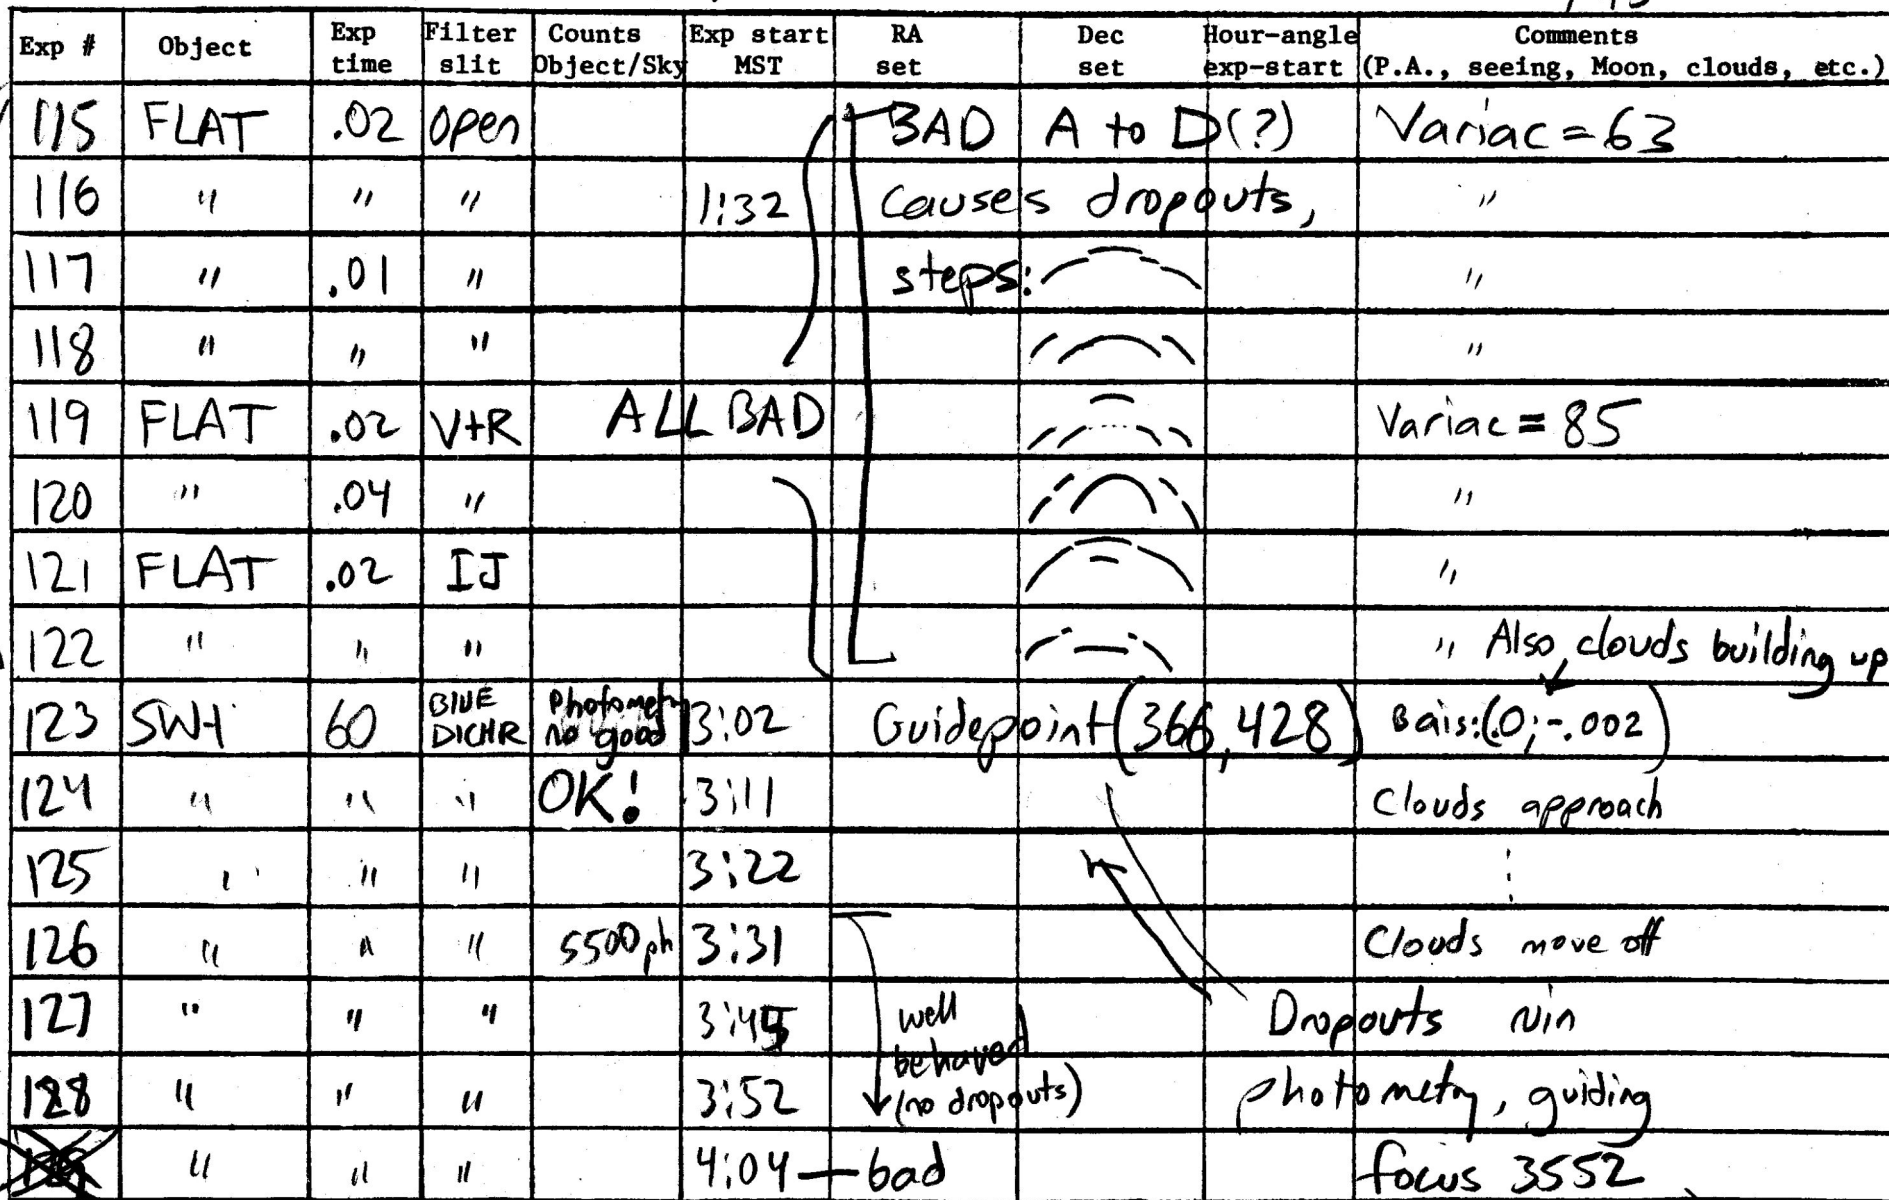 Exp # Object Exp time Filter slit Counts Object/Sky Exp start MST RA set Dec set Hour-angle exp-start Comments (P.A., seeing, Moon, clouds, etc.)
115 FLAT .02 open BAD A to D(?) Variac = 63
116 " " " 1:32 causes dropouts, "
117 " .01 " steps: "
118 " " " "
119 FLAT .02 V+R ALL BAD Variac = 85
120 " .04 " "
121 FLAT .02 IJ "
122 " " " " Also clouds building up
123 SWH 60 BLUE DICHR Photometry no good 3:02 Guidepoint (366,428) Bais:(.0;-.002)
124 " " " OK! 3:11 Clouds approach
125 " " " 3:22
126 " " " 5500 ph 3:31 Clouds move off
127 " " " 3:45 well behaved Dropouts ruin
128 " " " 3:52 (no dropouts) photometry, guiding
" " " 4:04 — bad focus 3552